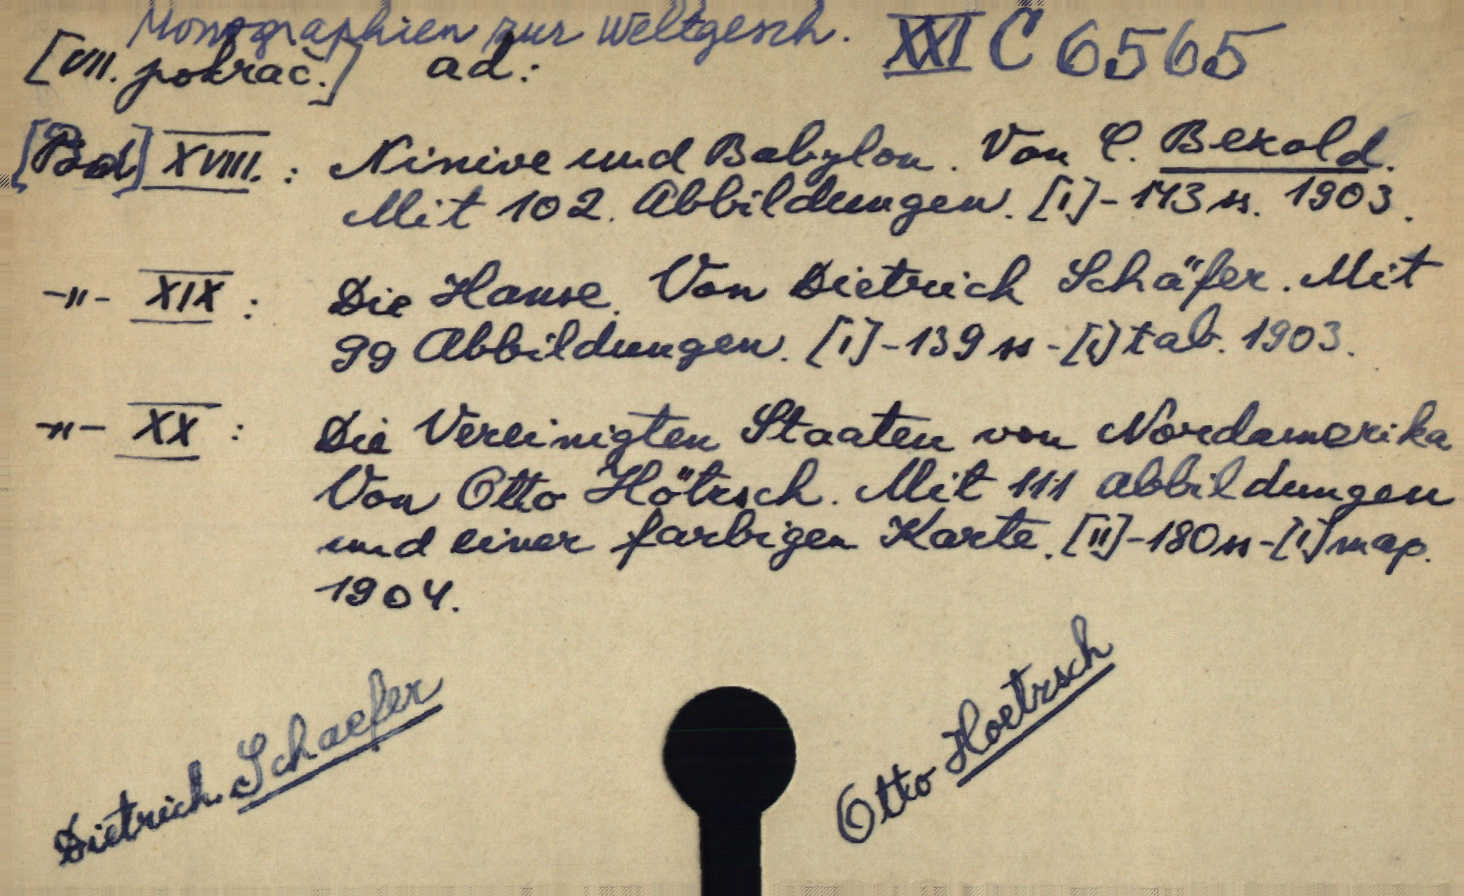 Monographien zur Weltgesch. XXI C 6565
[VII. pokrač.] ad:
[Bd] XVIII. : Ninive und Babylon. Von C. Bezold.
Mit 102. Abbildungen. [I]-143 ss. 1903.
-"- XIX : Die Hanse. Von Dietrich Schäfer. Mit
99 Abbildungen. [I]-139 ss-[I] tab. 1903.
-"- XX : Die Vereinigten Staaten von Nordamerika
Von Otto Hötzsch. Mit 111 abbildungen
und einer farbigen Karte. [II]-180 ss-[I] map.
1904.
Dietrich Schaefer
Otto Hoetzsch